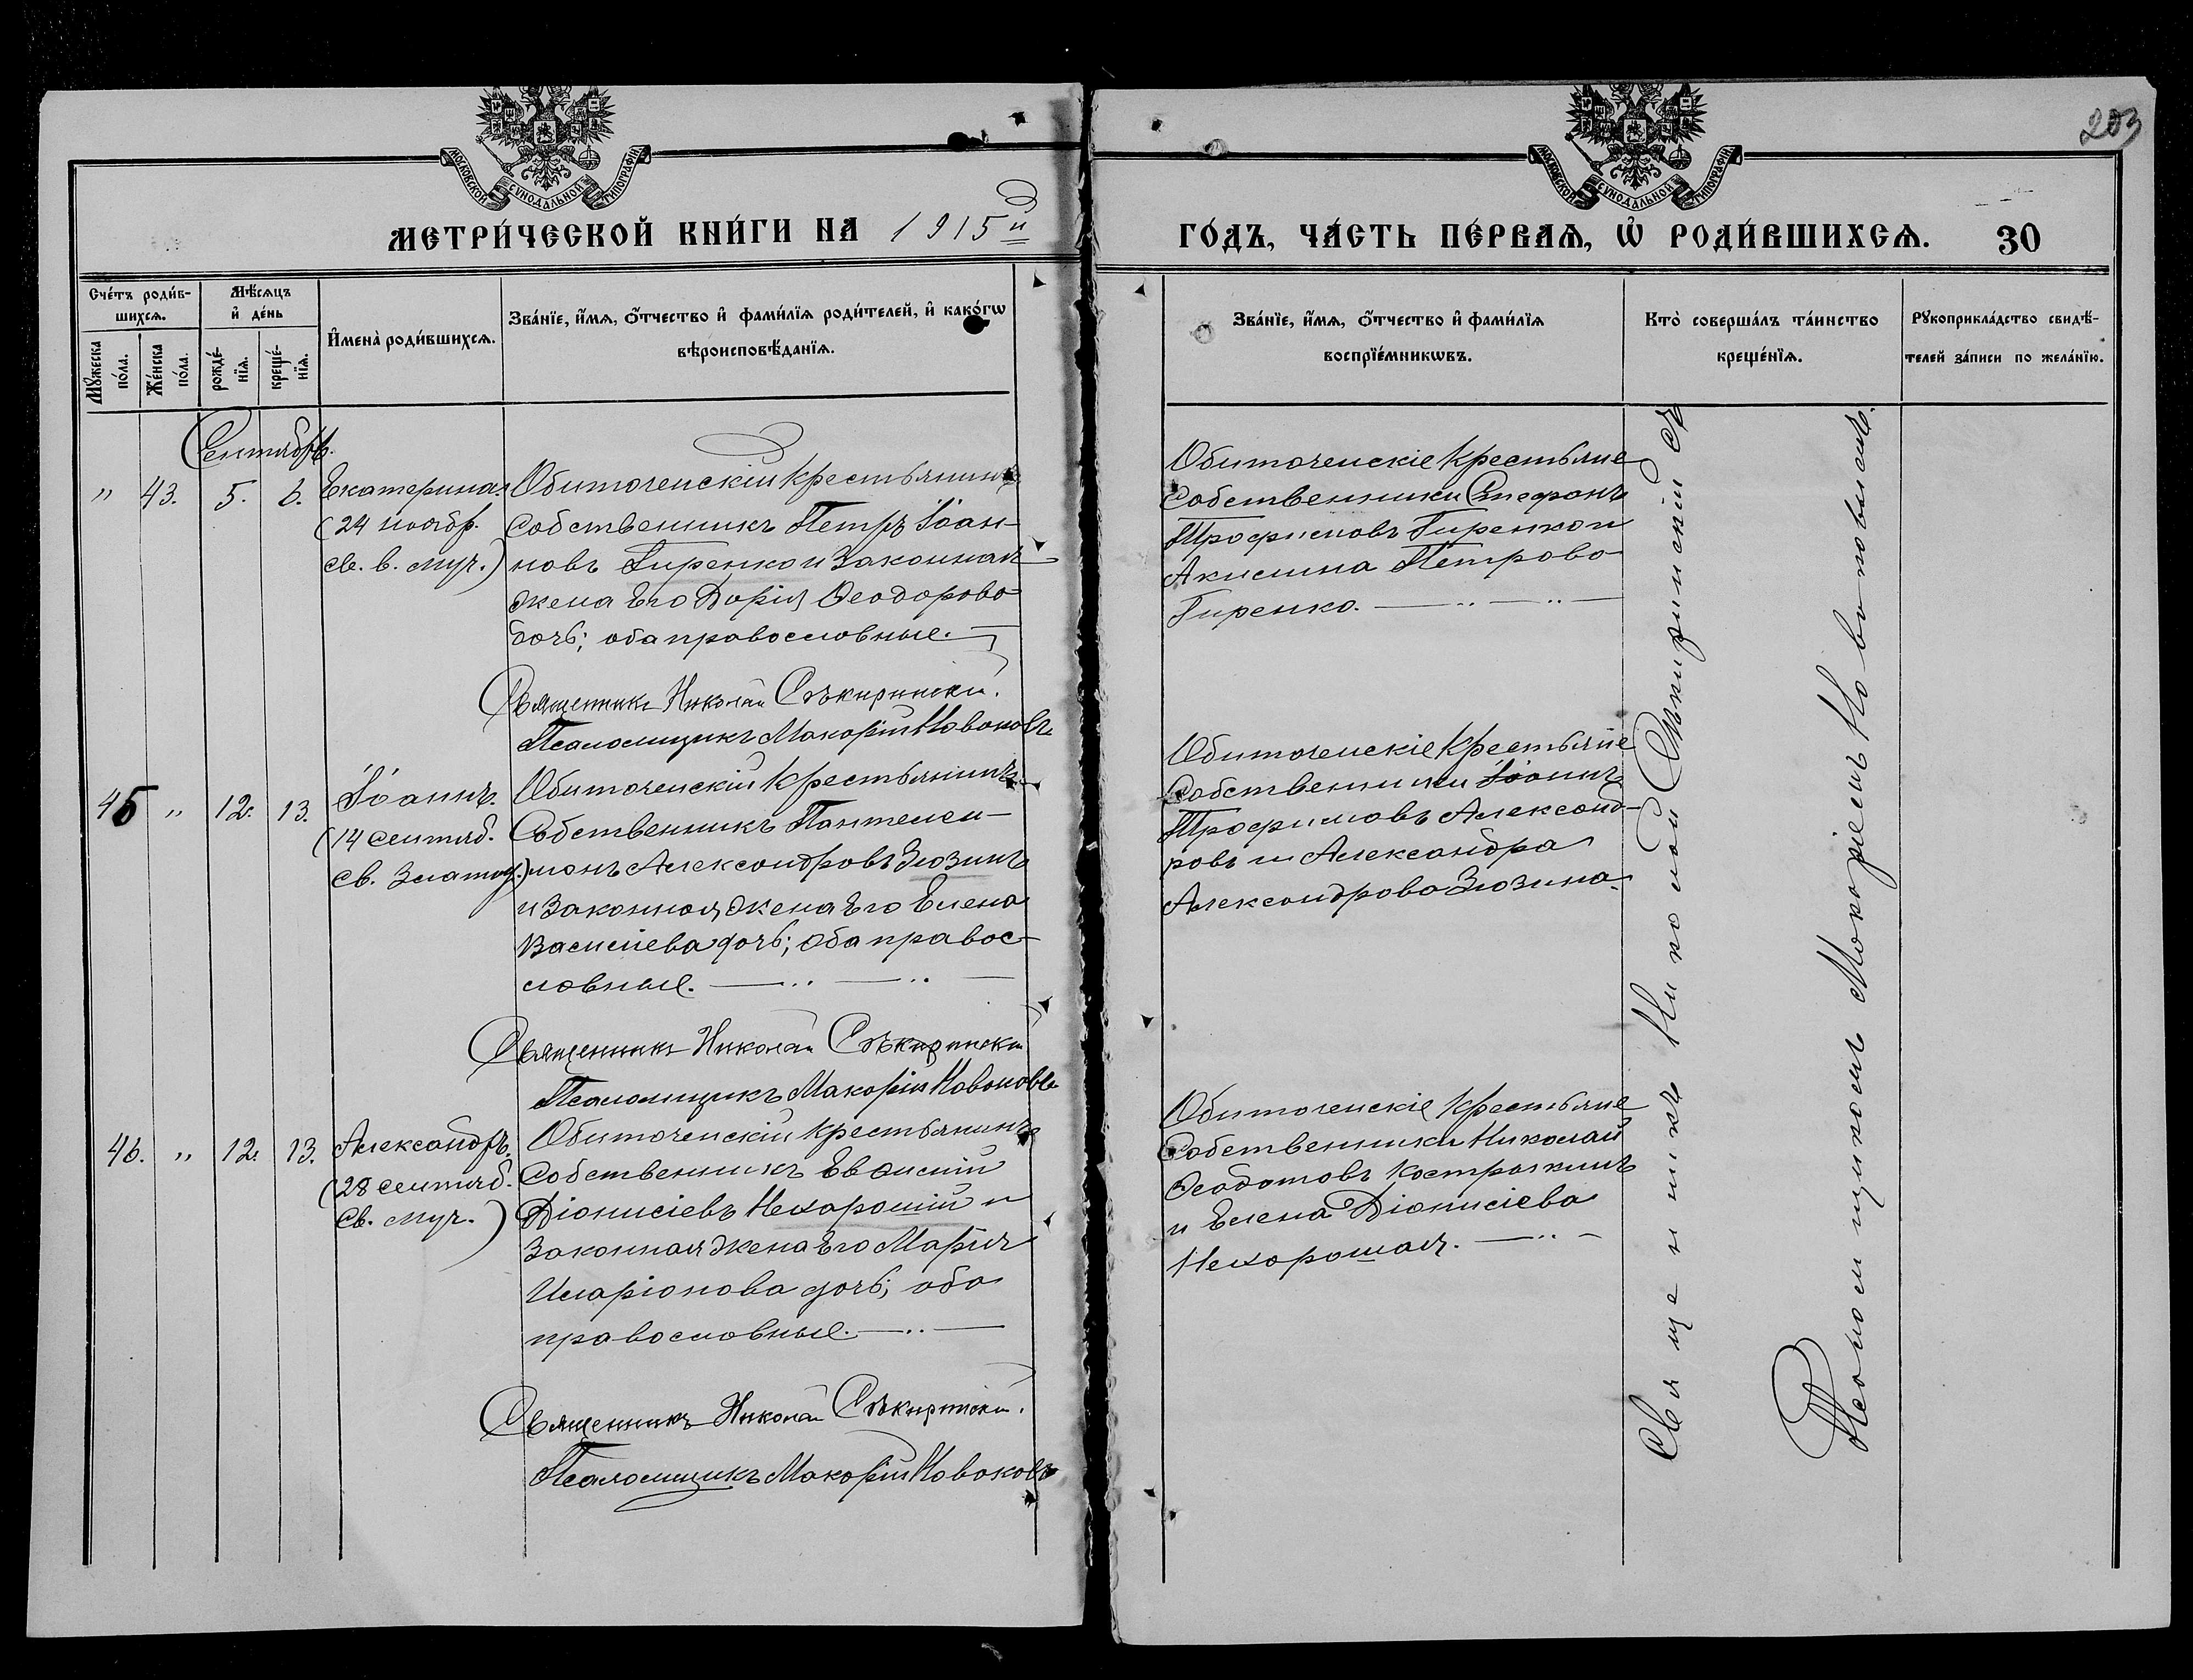 203
МОСКОВСКОЙ СѴНОДАЛЬНОЙ ТИПОГРАФІИ
МОСКОВСКОЙ СѴНОДАЛЬНОЙ ТИПОГРАФІИ
МЕТРИ́ЧЕСКОЙ КНИ́ГИ НА 1915й
ГО́ДЪ, ЧА́СТЬ ПЕ́РВАѦ, Ѡ҆ РОДИ́ВШИХСѦ. 30
Сче́тъ роди́в-
шихсѧ.
Мѣ́сѧцъ
и҆ де́нь
Мꙋ́жеска
по́ла.
Же́нска
по́ла.
рожде́-
нїѧ.
креще́-
нїѧ.
И҆мена̀ роди́вшихсѧ.
Зва́нїе, и҆́мѧ, ѻ҆́тчество и҆ фами́лїѧ роди́телей, и҆ како́гѡ
вѣроисповѣ́данїѧ.
Зва́нїе, и҆́мѧ, ѻ҆́тчество и҆ фами́лїѧ
воспрїе́мникѡвъ.
Кто̀ соверша́лъ та́инство
креще́нїѧ.
Рꙋкоприкла́дство свидѣ́-
телей за́писи по жела́нїю.
Сентябрь.
" 43. 5. 6. Екатерина.
(24 нояб.
св. в. муч.)
Обиточенскій крестьянинъ
собственникъ Петръ Іоан-
новъ Гиренко и законная
жена его Дарія Ѳеодорова
дочь; оба православные.
Священникъ Николай Сѣкиринскій.
Псаломщикъ Макарій Новаковъ
Обиточенскіе крестьяне
собственники Стефанъ
Трофимовъ Гиренко и
Акилина Петрова
Гиренко.
45 " 12. 13. Іоаннъ.
(14 сентяб.
св. Златоу.)
Обиточенскій крестьянинъ
собственникъ Пантелеи-
монъ Александровъ Зюзинъ
и законная жена его Елена
Василіева дочь; оба правос-
лавные.
Священникъ Николай Сѣкиринскій
Псаломщикъ Макарій Новаковъ
Обиточенскіе крестьяне
собственники Іоаннъ
Трофимовъ Александ-
ровъ и Александра
Александрова Зюзина.
46. " 12. 13. Александръ.
(28 сентяб.
св. муч.)
Обиточенскій крестьянинъ
собственникъ Евѳимій
Діонисіевъ Нехорошій и
законная жена его Марія
Иларіонова дочь; оба
православные.
Священникъ Николай Сѣкиринскій.
Псаломщикъ Макарій Новаковъ
Обиточенскіе крестьяне
собственники Николай
Ѳеодотовъ Костржкинъ
и Елена Діонисіева
Нехорошая.
Священникъ Николай Сѣкиринскій съ
Псаломщикомъ Макаріемъ Новаковымъ.